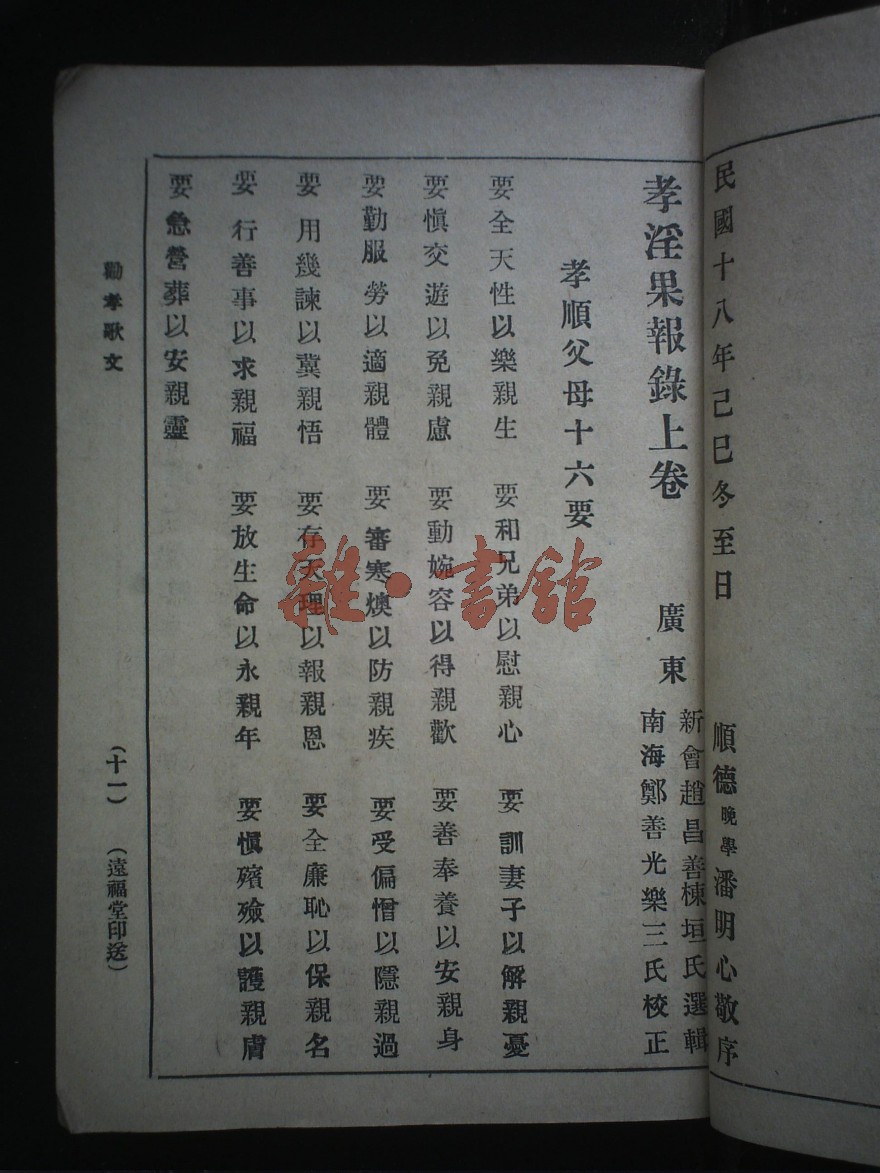 民國十八年己巳冬至日　順德晚學潘明心敬序
孝淫果報錄上卷　廣東
新會趙昌善棟垣氏選輯
南海鄭善光樂三氏校正
孝順父母十六要
要全天性以樂親生　要和兄弟以慰親心　要訓妻子以解親憂
要愼交遊以免親慮　要動婉容以得親歡　要善奉養以安親身
要勤服勞以適親體　要審寒燠以防親疾　要受偏憎以隱親過
要用幾諫以冀親悟　要存天理以報親恩　要全廉恥以保親名
要行善事以求親福　要放生命以永親年　要愼殯殮以護親膚
要急營葬以安親靈
勸孝歌文　（十一）　（遠福堂印送）
雜·書館